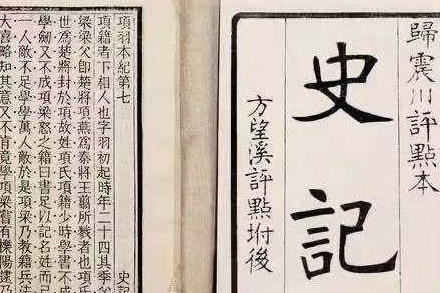 歸震川評點本
史記
方望溪評點坿後
項羽本紀第七 史記
項籍者下相人也字羽初起時年二十四其季
梁梁父卽楚將項燕爲秦將王翦所戮者也項
世爲楚將封於項故姓項氏項籍少時學書不
學劒又不成項梁怒之籍曰書足以記名姓而
一人敵不足學學萬人敵於是項梁乃教籍兵
大喜略知其意又不肯竟學項梁嘗有櫟陽逮